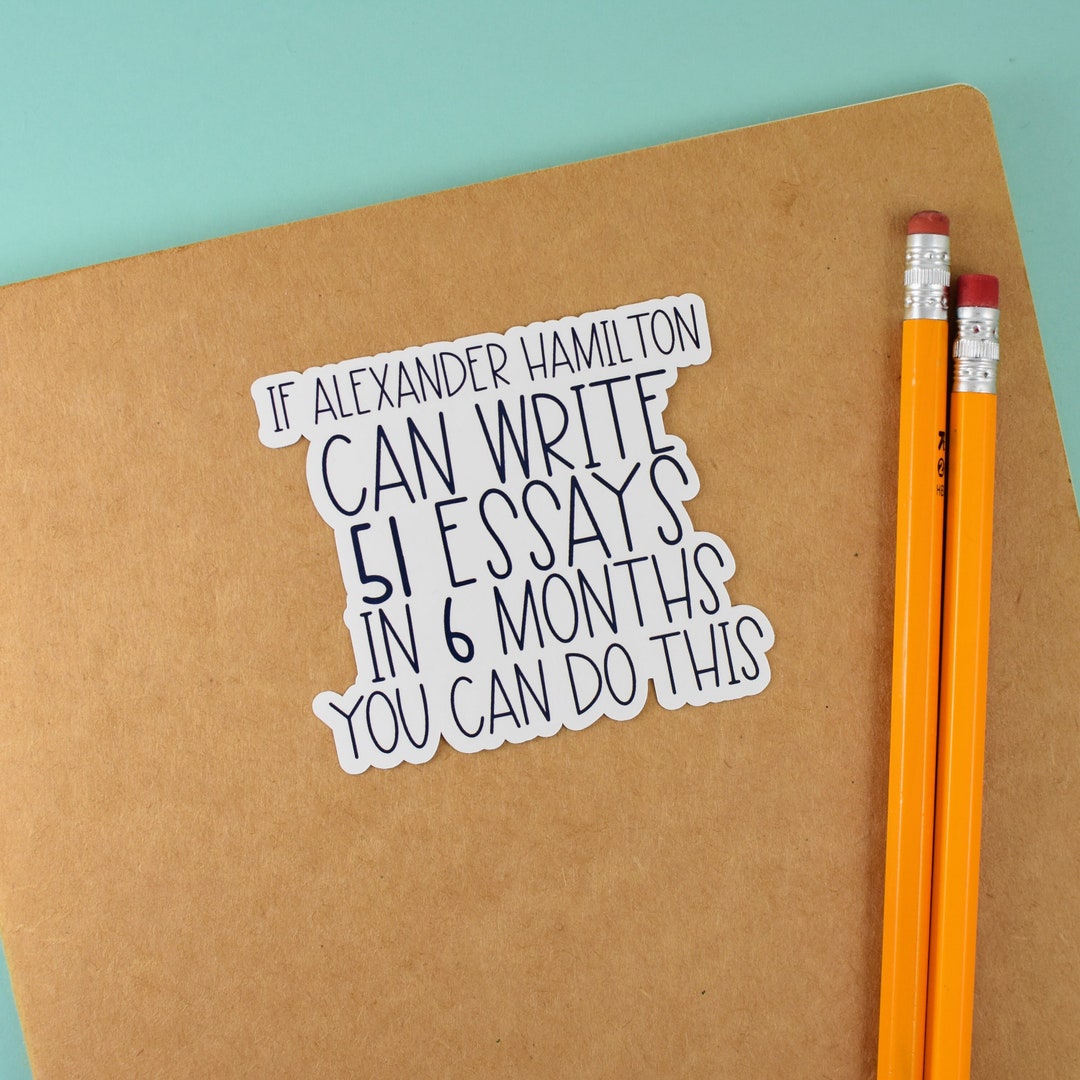 IF ALEXANDER HAMILTON
CAN WRITE
51 ESSAYS
IN 6 MONTHS
YOU CAN DO THIS
HB